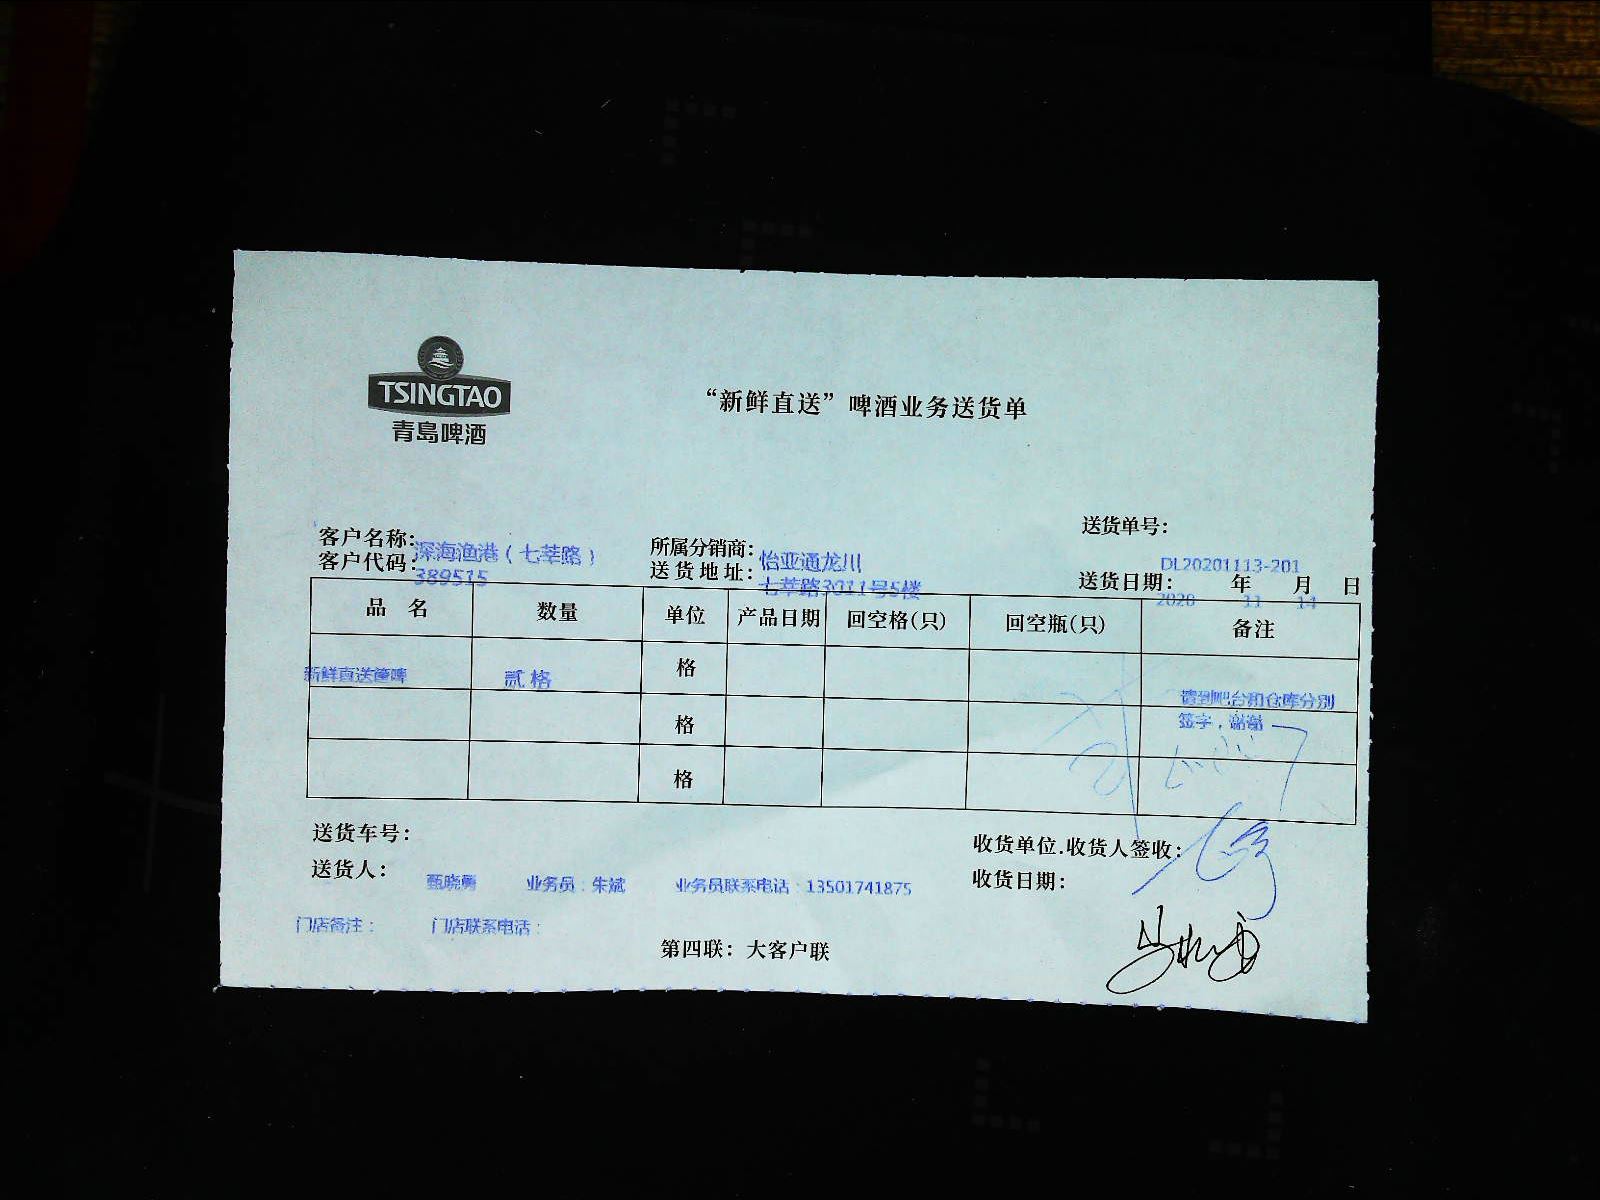 TSINGTAO
青島啤酒
“新鲜直送”啤酒业务送货单
送货单号：
DL20201113-201
客户名称：深海渔港（七莘路）
所属分销商：怡亚通龙川
客户代码：389515
送货地址：七莘路3011号5楼
送货日期：2020年11月14日
品名 数量 单位 产品日期 回空格(只) 回空瓶(只) 备注
新鲜直送 贰格 格 请到吧台和仓库分别
签字，谢谢
格
格
送货车号：
收货单位.收货人签收：
送货人：甄晓勇 业务员：朱斌 业务员联系电话：13501741875
收货日期：
门店备注： 门店联系电话：
第四联：大客户联